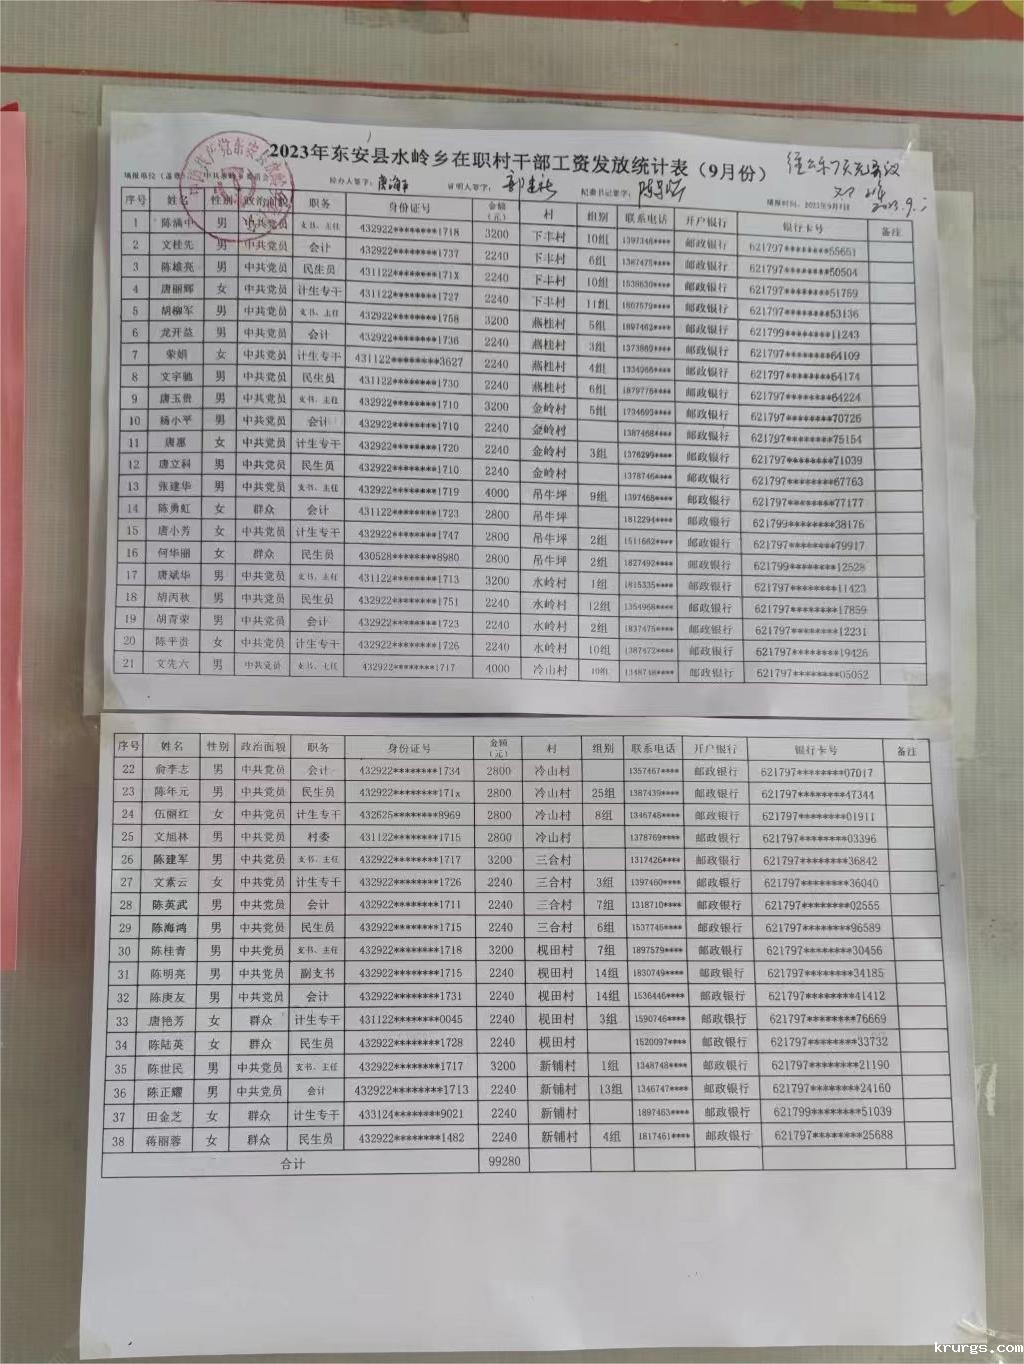 2023年东安县水岭乡在职村干部工资发放统计表（9月份）
经办人签字： 证明人签字： 纪委书记签字： 填报时间：2023年9月1日
序号 姓名 性别 政治面貌 职务 身份证号 金额（元） 村 组别 联系电话 开户银行 银行卡号 备注
1 陈满中 男 中共党员 支书、主任 432922********1718 3200 下丰村 10组 1397346**** 邮政银行 621797********55651
2 文桂先 男 中共党员 会计 432922********1737 2240 下丰村 6组 1387475**** 邮政银行 621797********50504
3 陈雄亮 男 中共党员 民生员 431122********171X 2240 下丰村 10组 1538630**** 邮政银行 621797********51759
4 唐丽辉 女 中共党员 计生专干 431122********1727 2240 下丰村 11组 1867579**** 邮政银行 621797********53136
5 胡柳军 男 中共党员 支书、主任 432922********1758 3200 燕桂村 5组 1897462**** 邮政银行 621799********11243
6 龙开益 男 中共党员 会计 432922********1736 2240 燕桂村 3组 1373869**** 邮政银行 621797********64109
7 荣娟 女 中共党员 计生专干 431122********3627 2240 燕桂村 4组 1334966**** 邮政银行 621797********64174
8 文宇驰 男 中共党员 民生员 431122********1730 2240 燕桂村 6组 1879776**** 邮政银行 621797********64224
9 唐玉贵 男 中共党员 支书、主任 432922********1710 3200 金岭村 5组 1734693**** 邮政银行 621797********70726
10 杨小平 男 中共党员 会计 432922********1710 2240 金岭村 1387468**** 邮政银行 621797********75154
11 唐惠 女 中共党员 计生专干 432922********1720 2240 金岭村 3组 1376299**** 邮政银行 621797********71039
12 唐立科 男 中共党员 民生员 432922********1710 2240 金岭村 1378746**** 邮政银行 621797********67763
13 张建华 男 中共党员 支书、主任 432922********1719 4000 吊牛坪 9组 1397468**** 邮政银行 621797********77177
14 陈勇虹 女 群众 会计 431122********1723 2800 吊牛坪 1812294**** 邮政银行 621799********38176
15 唐小芳 女 中共党员 计生专干 432922********1747 2800 吊牛坪 2组 1511662**** 邮政银行 621797********79917
16 何华丽 女 群众 民生员 430528********8980 2800 吊牛坪 2组 1827492**** 邮政银行 621799********12528
17 唐斌华 男 中共党员 支书、主任 431122********1713 3200 水岭村 1组 1815335**** 邮政银行 621797********11423
18 胡丙秋 男 中共党员 民生员 432922********1751 2240 水岭村 12组 1354968**** 邮政银行 621797********17859
19 胡青荣 男 中共党员 会计 432922********1723 2240 水岭村 2组 1837475**** 邮政银行 621797********12231
20 陈平贵 女 中共党员 计生专干 432922********1726 2240 水岭村 10组 1387472**** 邮政银行 621797********19426
21 文先六 男 中共党员 支书、主任 432922********1717 4000 冷山村 10组 1348748**** 邮政银行 621797********05052
序号 姓名 性别 政治面貌 职务 身份证号 金额（元） 村 组别 联系电话 开户银行 银行卡号 备注
22 俞李志 男 中共党员 会计 432922********1734 2800 冷山村 1357467**** 邮政银行 621797********07017
23 陈年元 男 中共党员 民生员 432922********171x 2800 冷山村 25组 1387439**** 邮政银行 621797********47344
24 伍丽红 女 中共党员 计生专干 432625********8969 2800 冷山村 8组 1346748**** 邮政银行 621797********01911
25 文旭林 男 中共党员 村委 431122********1715 2800 冷山村 1378769**** 邮政银行 621797********03396
26 陈建军 男 中共党员 支书、主任 432922********1717 3200 三合村 1317426**** 邮政银行 621797********36842
27 文素云 女 中共党员 计生专干 432922********1726 2240 三合村 3组 1397460**** 邮政银行 621797********36040
28 陈英武 男 中共党员 会计 432922********1711 2240 三合村 7组 1318710**** 邮政银行 621797********02555
29 陈海鸿 男 中共党员 民生员 432922********1715 2240 三合村 6组 1537745**** 邮政银行 621797********96589
30 陈桂青 男 中共党员 支书、主任 432922********1718 3200 枧田村 7组 1897579**** 邮政银行 621797********30456
31 陈明亮 男 中共党员 副支书 432922********1715 2240 枧田村 14组 1830749**** 邮政银行 621797********34185
32 陈庚友 男 中共党员 会计 432922********1731 2240 枧田村 14组 1536446**** 邮政银行 621797********41412
33 唐艳芳 女 群众 计生专干 431122********0045 2240 枧田村 3组 1590746**** 邮政银行 621797********76669
34 陈陆英 女 群众 民生员 432922********1728 2240 枧田村 1520097**** 邮政银行 621797********33732
35 陈世民 男 中共党员 支书、主任 432922********1717 3200 新铺村 1组 1348748**** 邮政银行 621797********21190
36 陈正耀 男 中共党员 会计 432922********1713 2240 新铺村 13组 1346747**** 邮政银行 621797********24160
37 田金芝 女 群众 计生专干 433124********9021 2240 新铺村 1897463**** 邮政银行 621799********51039
38 蒋丽蓉 女 群众 民生员 432922********1482 2240 新铺村 4组 1817461**** 邮政银行 621797********25688
合计 99280
krurgs.com